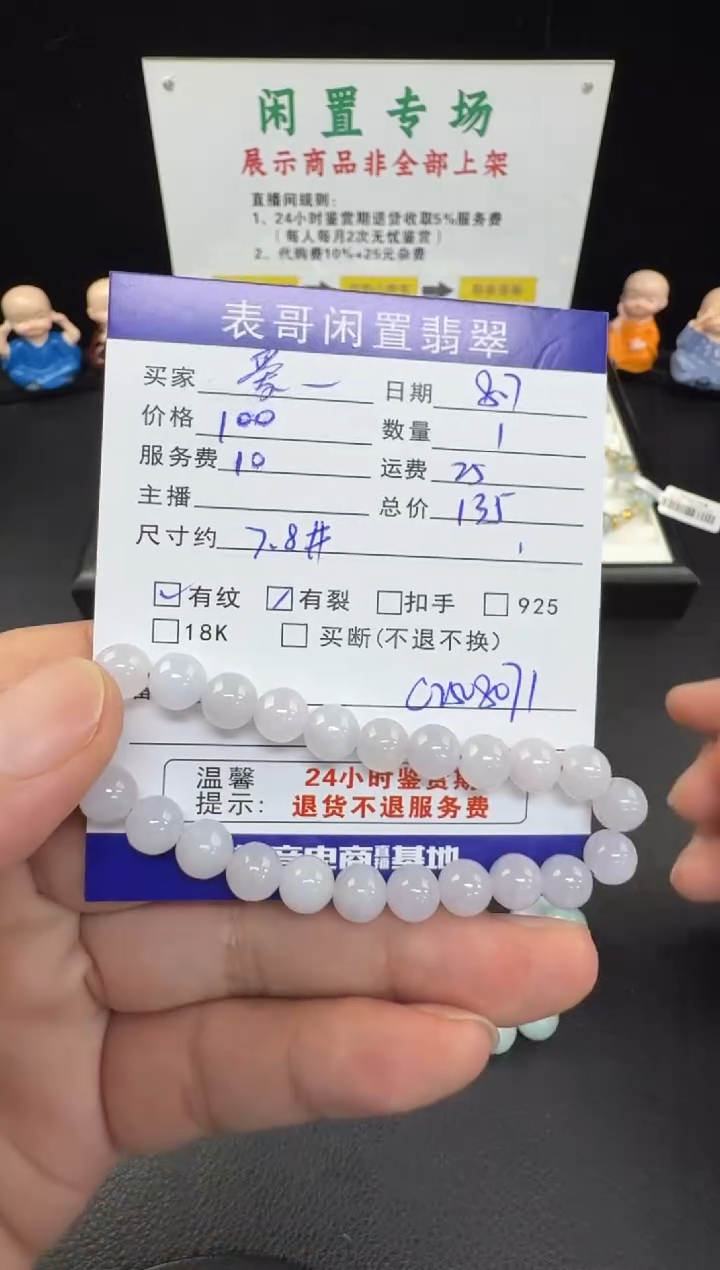 闲置专场
展示商品非全部上架
直播间规则:
1、24小时鉴赏期退货收取5%服务费
(每人每月2次无忧鉴赏)
2、代购费10%+25元杂费
表哥闲置翡翠
买家 日期 8.7
价格 100 数量 1
服务费 10 运费 25
主播 总价 135
尺寸约 7.8#
有纹 有裂 扣手 925
18K 买断(不退不换)
温馨 24小时鉴赏期
提示: 退货不退服务费
电商直播基地